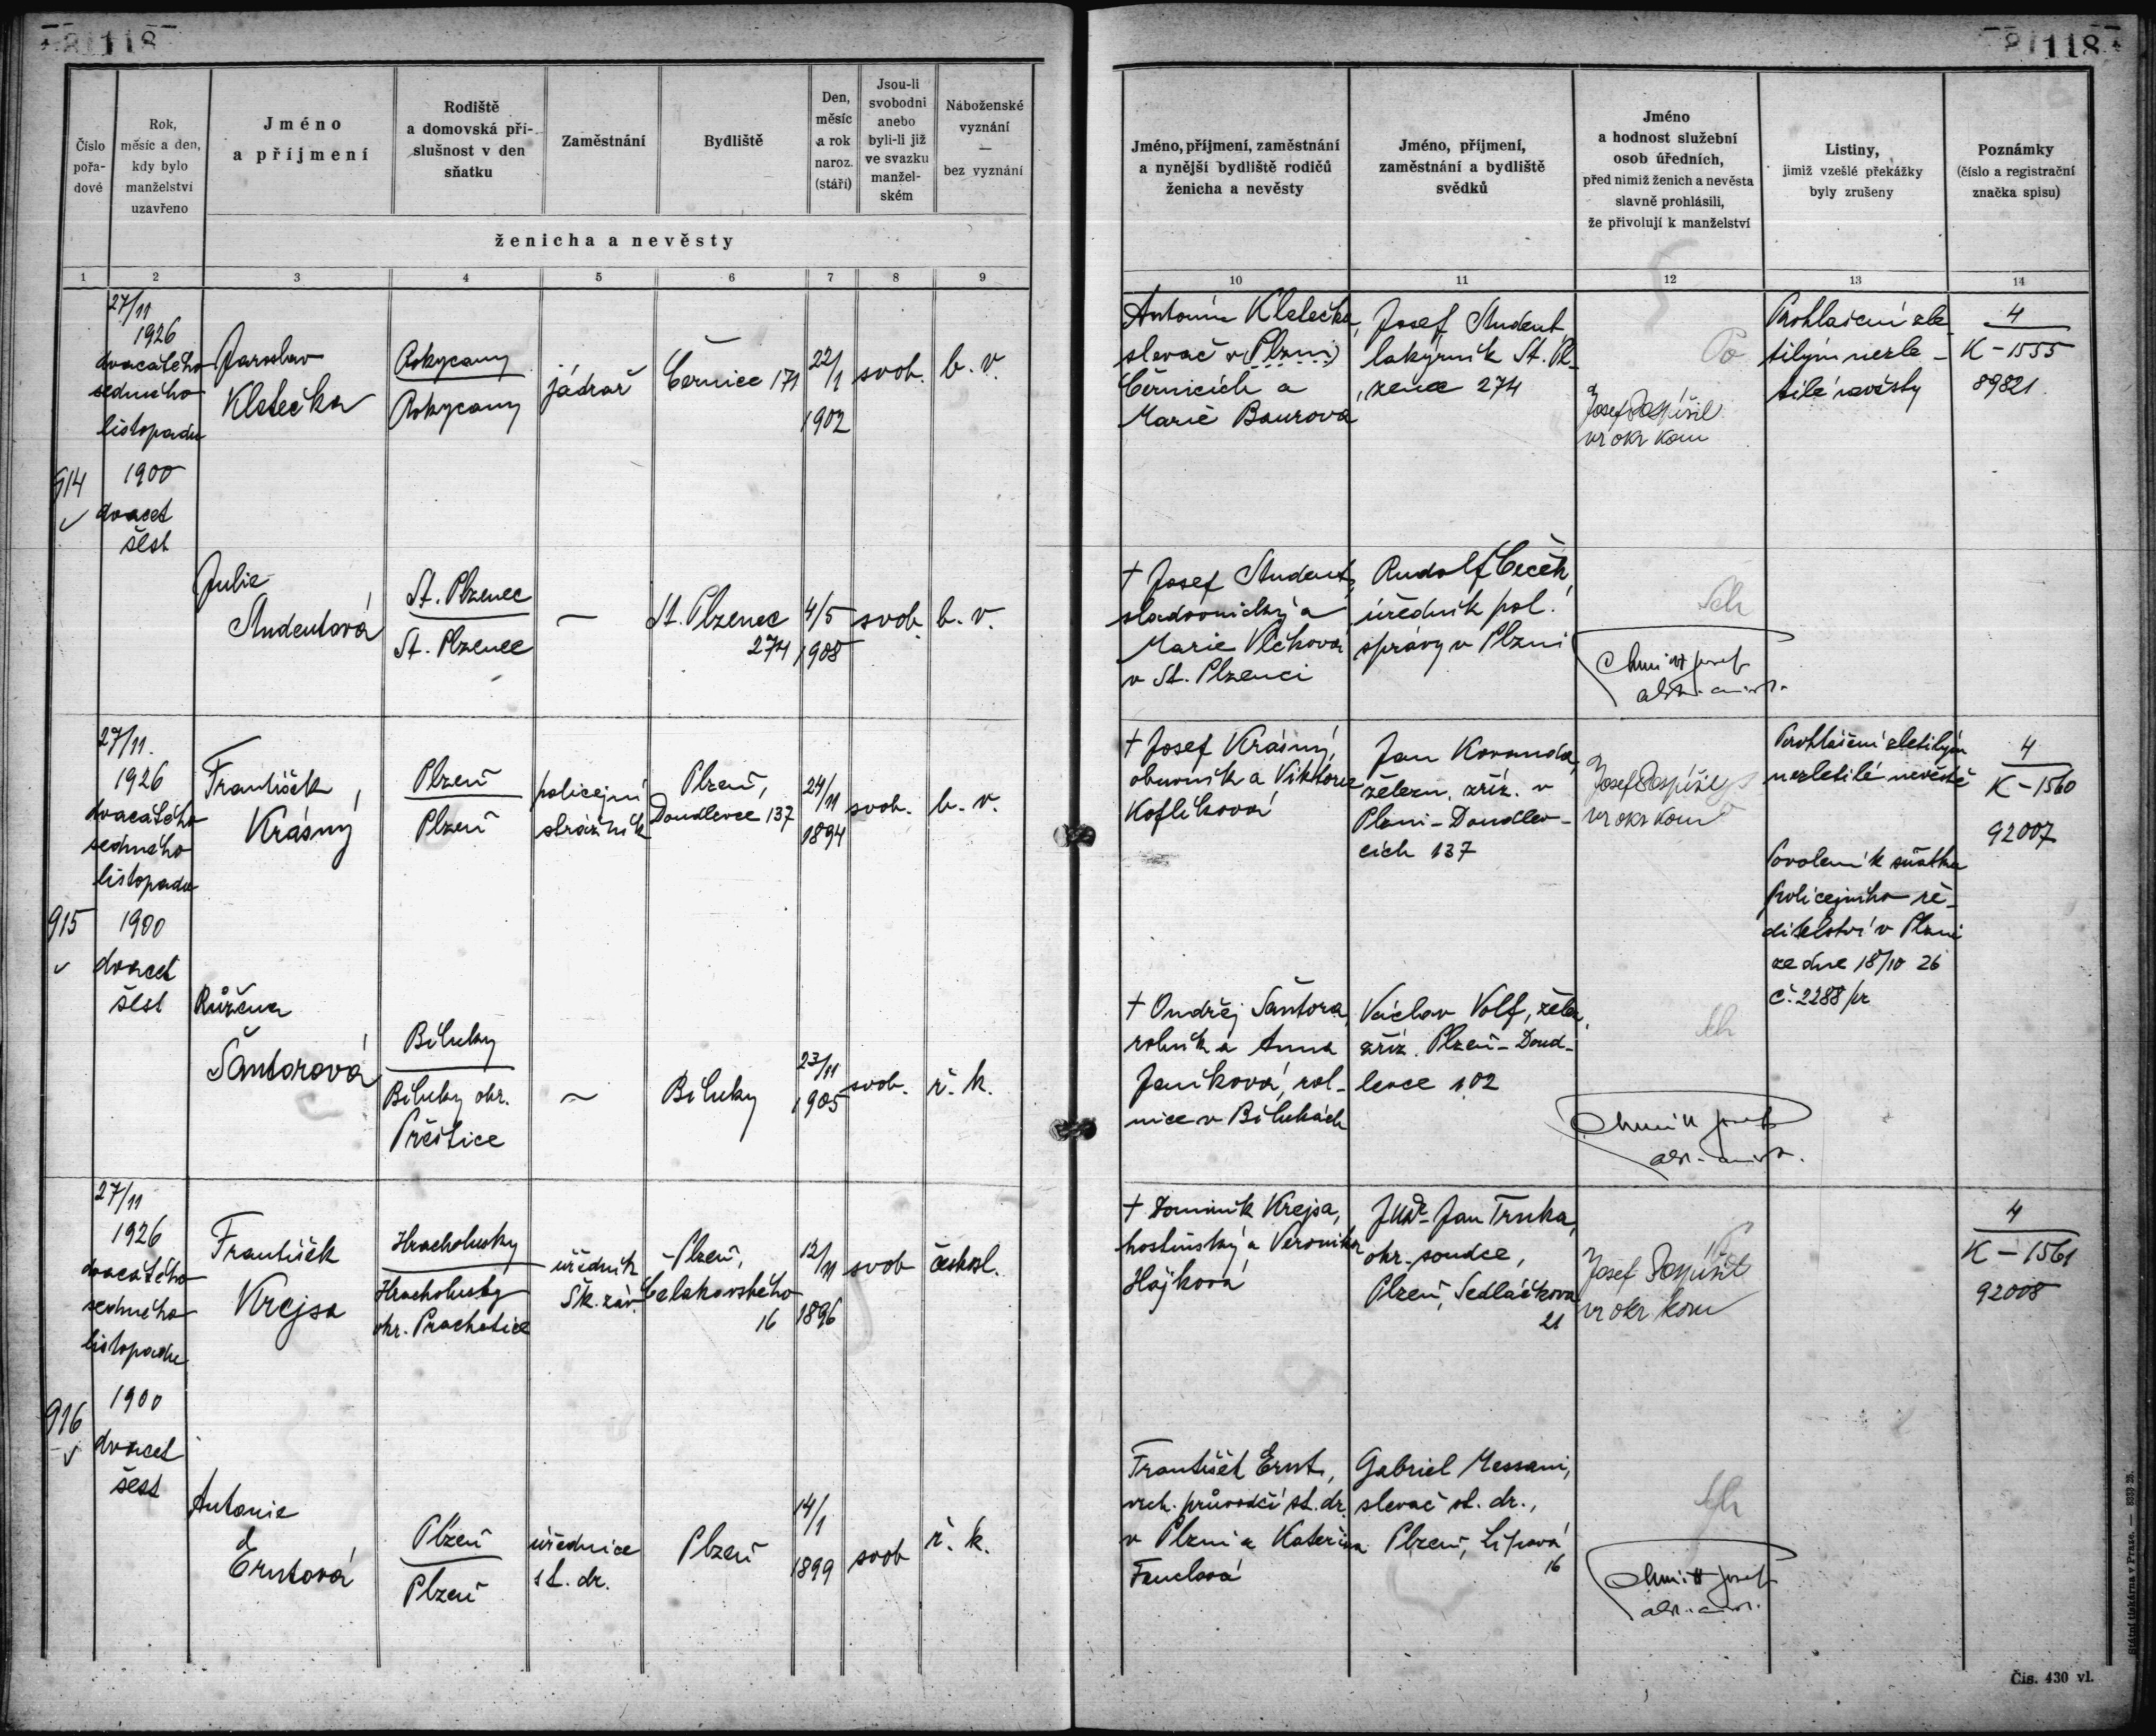 118
118
Číslo
pořa-
dové
Rok,
měsíc a den,
kdy bylo
manželství
uzavřeno
Jméno
a příjmení
Rodiště
a domovská pří-
slušnost v den
sňatku
Zaměstnání
Bydliště
Den,
měsíc
a rok
naroz.
(stáří)
Jsou-li
svobodni
anebo
byli-li již
ve svazku
manžel-
ském
Náboženské
vyznání
—
bez vyznání
ženicha a nevěsty
1 2 3 4 5 6 7 8 9
Jméno, příjmení, zaměstnání
a nynější bydliště rodičů
ženicha a nevěsty
Jméno, příjmení,
zaměstnání a bydliště
svědků
Jméno
a hodnost služební
osob úředních,
před nimiž ženich a nevěsta
slavně prohlásili,
že přivolují k manželství
Listiny,
jimiž vzešlé překážky
byly zrušeny
Poznámky
(číslo a registrační
značka spisu)
10 11 12 13 14
914
27/11
1926
dvacátého
sedmého
listopadu
1900
dvacet
šest
Jaroslav
Kletečka
Rokycany
Rokycany
jádrař
Černice 171
22/1
1902
svob.
b. v.
Antonín Kletečka,
slevač v (Plzni)
Černicích a
Marie Baurova
Josef Student,
lakýrník St. Pl-
zenec 274
Josef Pospíšil
vr okr kom
Prohlášení zle
tilým nezle-
tilé nevěsty
4
K-1555
89821
Julie
Studentová
St. Plzenec
St. Plzenec
—
St. Plzenec
274
4/5
1908
svob.
b. v.
+ Josef Student,
sladovnický a
Marie Vlčková
v St. Plzenci
Rudolf Čečeh,
úředník pol.
správy v Plzni
Sch
915
27/11.
1926
dvacátého
sedmého
listopadu
1900
dvacet
šest
František
Krásný
Plzeň
Plzeň
policejní
strážník
Plzeň,
Doudlevce 137
24/11
1894
svob.
b. v.
+ Josef Krásný,
obuvník a Viktorie
Koflíková
Jan Kovanda,
železn. zříz. v
Plzni-Doudlev-
cích 137
Josef Pospíšil
vr okr kom
Prohlášení zletilým
nezletilé nevěstě
Povolení k sňatku
policejního ře-
ditelství v Plzni
ze dne 18/10 26
č. 2288/pr
4
K-1560
92007
Růžena
Šantorová
Biluky
Biluky okr.
Přeštice
—
Biluky
23/11
1905
svob.
ř. k.
+ Ondřej Šantora,
rolník a Anna
Janíková, rol-
nice v Bilukách
Václav Volf, želez.
zříz. Plzeň-Doud-
levce 102
Sch
916
27/11
1926
dvacátého
sedmého
listopadu
1900
dvacet
šest
František
Krejsa
Hracholusky
Hracholusky
okr. Prachatice
úředník
Šk. záv.
Plzeň,
Čelakovského
16
12/11
1896
svob
českosl.
+ Dominik Krejsa,
hostinský a Veronika
Hájková
JUDr Jan Trnka,
okr. soudce,
Plzeň, Sedláčkova
21
Josef Pospíšil
vr okr kom
4
K-1561
92008
Antonie
Ernstová
Plzeň
Plzeň
úřednice
st. dr.
Plzeň
14/1
1899
svob
ř. k.
František Ernst,
vrch. průvodčí st. dr.
v Plzni a Kateřina
Slevač st. dr.,
Gabriel Messani,
Plzeň, Lipová
16
Sch
Čís. 430 vl.